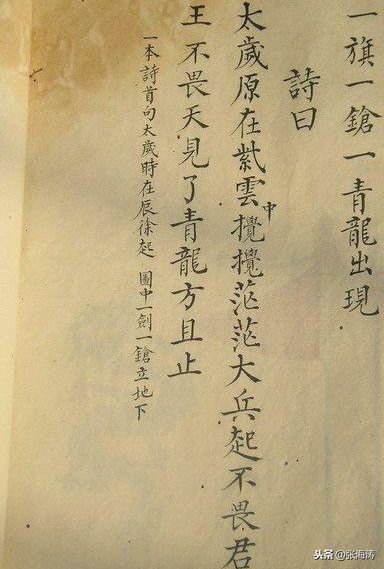 一旗一鎗一青龍出現
詩曰
太歲原在紫雲中攪攪茫茫大兵起不畏君
王不畏天見了青龍方且止
一本詩首句太歲時在辰徐起 圖中一劍一鎗立地下
头条@张海涛